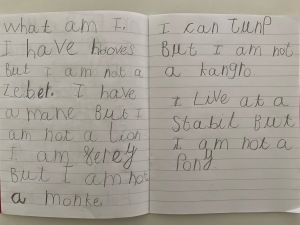 what am I.
I have hooves
But I am not a
zeber. I have
a mane But I
am not a lion
I am
But I am not
a monke
I can Junp
But I am not
a kangro
I live at a
Stabil But
I am not a
Pony